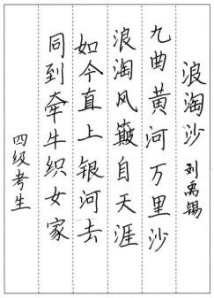 浪淘沙
刘禹锡
九曲黄河万里沙
浪淘风簸自天涯
如今直上银河去
同到牵牛织女家
四级考生